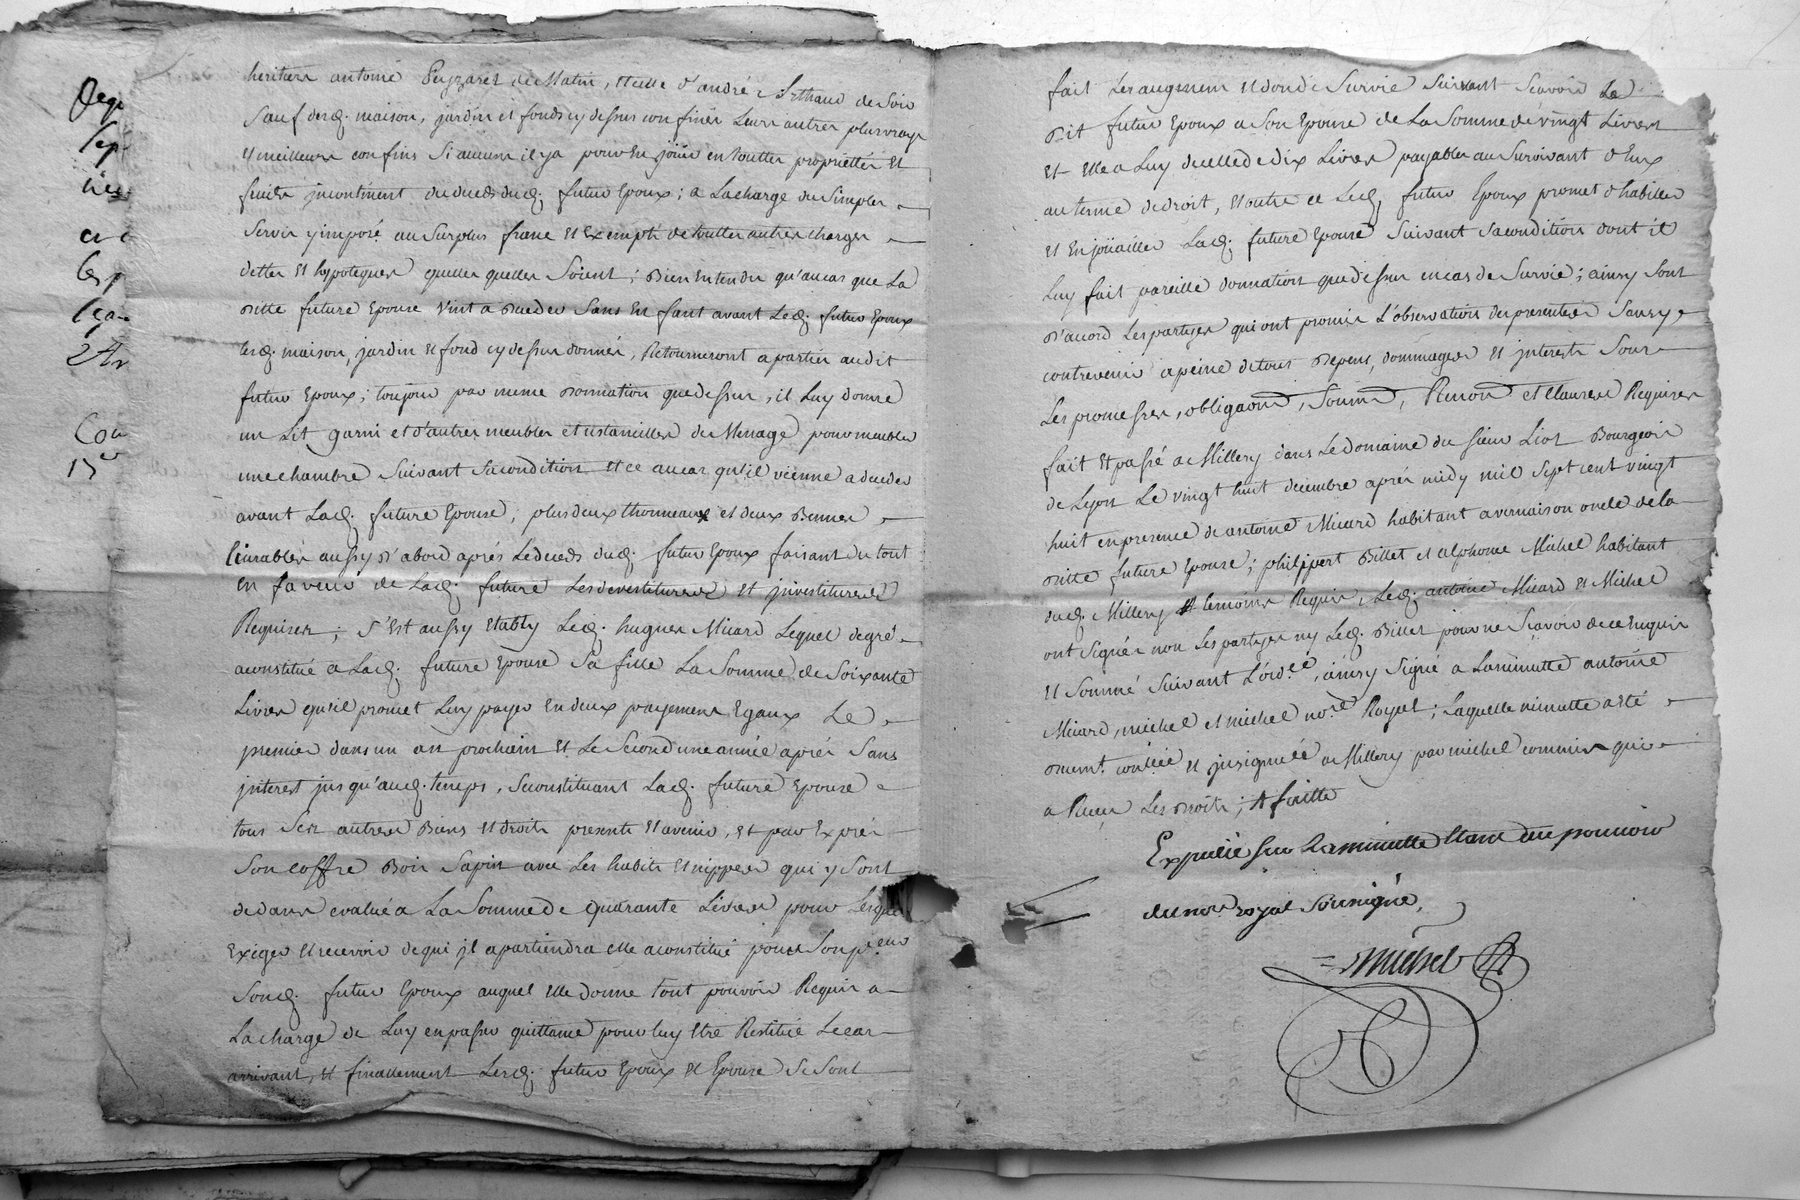 Cou
heritiers antoine Peyzaret de Matin, et celle d'andré Berthaud de Soir
Sauf desd. maison, jardin et fonds cy dessus confinés Leurs autres plus vrays
et meilleurs confins Si aucuns il y a pour En joüir en toutte proprietté et
fruits incontinent du deceds dud. futur Epoux; a La charge du Simple
Servis y imposé au Surplus franc et Exempt de touttes autres charges
dettes et hypoteques quelles quelles Soient; Bien Entendu qu'au cas que La
ditte future Epouse vint a deceder Sans Enfant avant Led. futur Epoux
lesd. maison, jardin et fond cy dessus donnés, Retourneront a partir audit
futur Epoux; toujour par meme donnation que dessus, il Luy donne
un Lit garni et d'autres meubles et ustancilles du Menage pour meubler
une chambre Suivant Sa condition et ce au cas qu'il vienne a deceder
avant Lad. future Epouse; plus deux thonneaux et deux Bennes
livrables aussy d'abord aprés Le deceds dud. futur Epoux faisant du tout
en faveur de Lad. future Les devestitures et investitures
Requises; S'Est aussy Etably Led. hugues Micard Lequel de gré
a constitué a Lad. future Epouse Sa fille La Somme de Soixante
Livres qu'il promet Luy payer En deux payemens Egaux Le
premier dans un an prochain et Le Second une année aprés Sans
interest jusqu'aud. temps, Se constituant Lad. future Epouse
tous Ses autres Biens et droits presents et avenir, et par Exprés
Son coffre Bois Sapin avec Les habits et nippes qui y Sont
dedans evalué a La Somme de quarante Livres pour Lesquel
Exiger et recevoir de qui il apartiendra elle a constitué pour Son p.eur
Sond. futur Epoux auquel elle donne tout pouvoir Requis a
La charge de Luy en passer quittance pour luy Etre Restitué Le cas
arrivant, et finallement Lesd. futur Epoux et Epouse Se Sont
fait Les augment et don de Survie Suivant Scavoir Le
dit futur Epoux a Son Epouse de La Somme de vingt Livres
et Elle a Luy de celle de dix Livres payables au Survivant d'Eux
au terme de droit, et outre ce Led. futur Epoux promet d'habiller
et Enjoüailler Lad. future Epouse Suivant Sa condition dont il
Luy fait pareille donnation que dessus en cas de Survie; ainsy Sont
d'acord Les partyes qui ont promis L'observation des presentes Sans y
contrevenir a peine de tous depens, dommages et interests Sous
Les promesses, obligaons, Soumd, Renond et clauses Requises
fait Et passé a Millery dans Le domaine du Sieur Liot Bourgeois
de Lyon Le vingt huit decembre aprés midy mil Sept cent vingt
huit en presence de antoine Micard habitant a vernaison oncle de la
ditte future Epouse; philippert Billet et alphonse Michel habitant
dud. Millery temoins Requis, Led. antoine Micard et Michel
ont Signés non Les partyes ny Led. Billet pour ne Scavoir de ce Enquis
et Sommé Suivant L'ord.ce, ainsy Signé a La minutte antoine
Micard, michel et michel no.re Royal; Laquelle minutte a Eté
duemt. conllée et insignuée a Millery par michel commis qui
a Reçu Les droits; A faitte
Expedié Sur La minutte Etant au pouvoir
du no.re royal Soussigné,
Michel